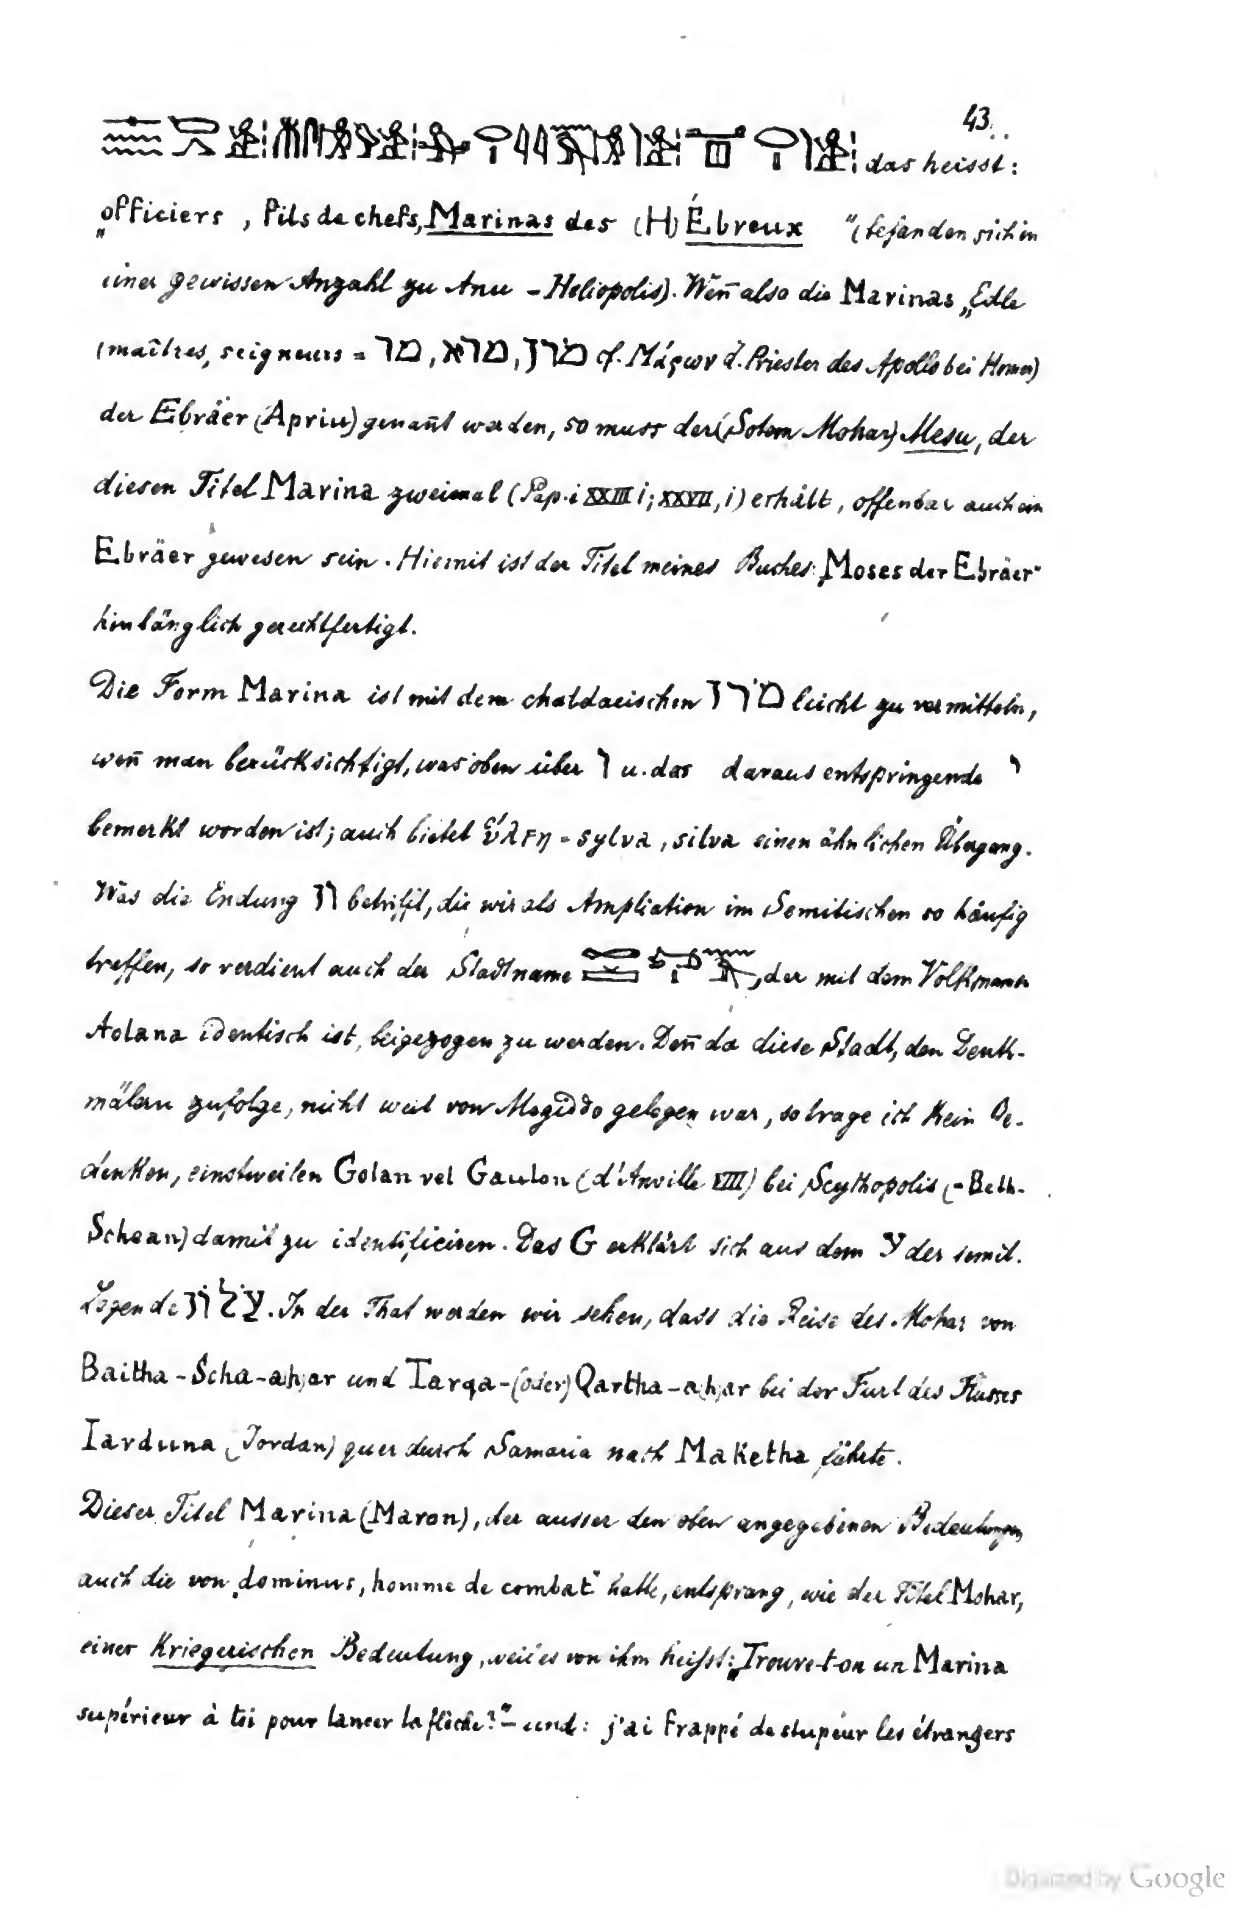 43.
das heisst:
„officiers, fils de chefs, Marinas des (H)Ébreux" (befanden sich in
einer gewissen Anzahl zu Anu - Heliopolis). Wen̄ also die Marinas „Edle
(maîtres, seigneurs = מרן, מרא, מר cf. Μάρων d. Priester des Apollo bei Homer)
der Ebräer (Apriu) genan̄t werden, so muss der (Sotem Mohar) Mesu, der
diesen Titel Marina zweimal (Pap. i XXIII i; XXVII, i) erhält, offenbar auch ein
Ebräer gewesen sein. Hiemit ist der Titel meines Buches: „Moses der Ebräer"
hinlänglich gerechtfertigt.
Die Form Marina ist mit dem chaldaeischen מרן leicht zu vermitteln,
wen̄ man berücksichtigt, was oben über ו u. das daraus entspringende י
bemerkt worden ist; auch bietet ὕλϝη = sylva, silva einen ähnlichen Übergang.
Was die Endung ון betrifft, die wir als Ampliation im Semitischen so häufig
treffen, so verdient auch der Stadtname , der mit dem Volksnamen
Aolana identisch ist, beigezogen zu werden. Den̄ da diese Stadt, den Denk-
mälern zufolge, nicht weit von Megiddo gelegen war, so trage ich kein Be-
denken, einstweilen Golan vel Gaulon (d'Anville VIII) bei Scythopolis (= Beth-
Schean) damit zu identificiren. Das G erklärt sich aus dem ע der semit.
Legende עלון. In der That werden wir sehen, dass die Reise des Mohar von
Baitha-Scha-a(h)ar und Tarqa-(oder) Qartha-a(h)ar bei der Furt des Flusses
Iarduna (Jordan) quer durch Samaria nach Maketha führte.
Dieser Titel Marina (Maron), der ausser den oben angegebenen Bedeutungen
auch die von „dominus, homme de combat" hatte, entsprang, wie der Titel Mohar,
einer kriegerischen Bedeutung, weil es von ihm heisst: „Trouve-t-on un Marina
supérieur à toi pour lancer la flèche?" – und: j'ai frappé de stupeur les étrangers
Digitized by Google